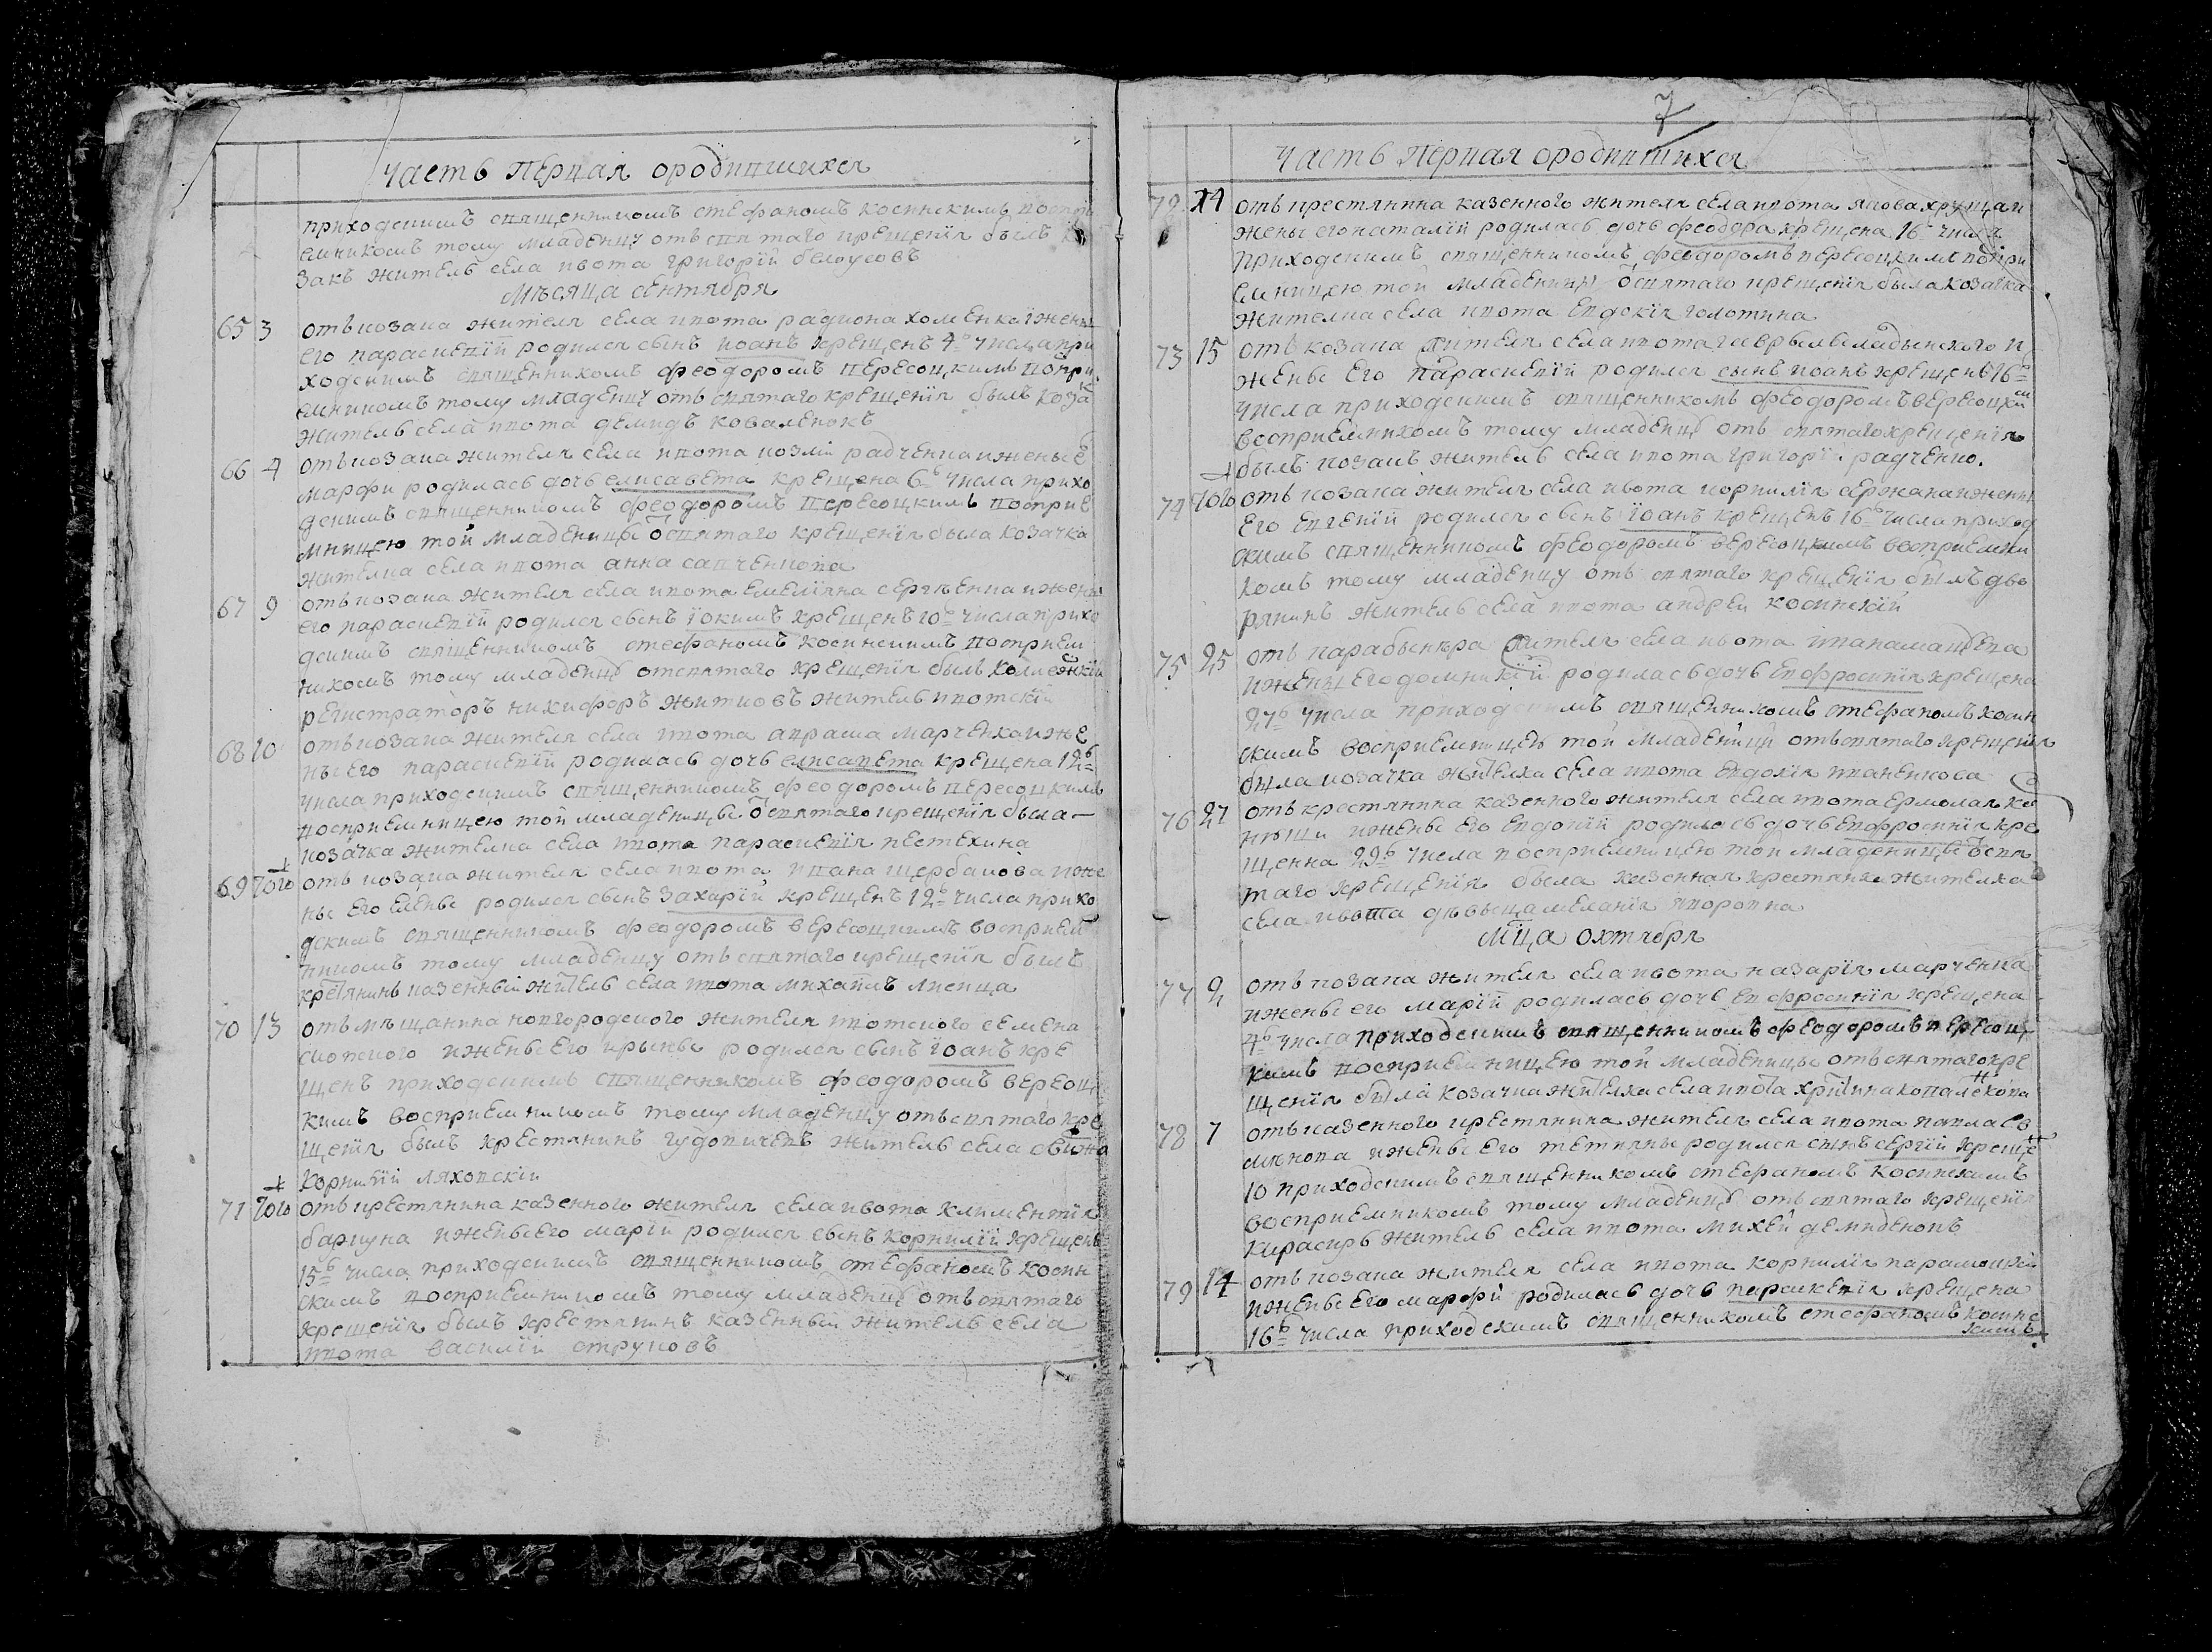 часть первая ородившихся
приходскимъ священникомъ стефаномъ косинскимъ воспрі
емникомъ тому младенцу отъ святаго крещенія былъ ко
закъ житель села ивота григорій белоусовъ
Мѣсяца сентября
65 3 отъ козака жителя села ивота радиона хоменка іжены
его параскевій родился сынъ иоанъ крещенъ 4г числа при
ходскимъ священникомъ феодоромъ вересоцкимъ воспри
емникомъ тому младенцу отъ святаго крещенія былъ козакъ
житель села ивота демидъ коваленокъ
66 4 отъ козака жителя села ивота козмі радченка ижены е
марфи родилась дочь елисавета крещена 6ь числа прихо
дскимъ священникомъ феодоромъ вересоцкимъ воспріе
мницею той младеницы ѿ святаго крещенія была козачка
жителка села ивота анна савченкова
67 9 отъ козака жителя села ивота емеліяна сергѣенка ижены
его параскевій родился сынъ іокимъ крещенъ 10ь числа прихо
дскимъ священникомъ стефаномъ косинскимъ восприем
никомъ тому младенцу отсвятаго крещенія былъ колежскій
регистраторъ никифоръ житковъ житель ивотскій
68 10 отъ козака жителя села ивота марченка ижe
ны его параскевій родилась дочь елисавета крещена 12ь
числа приходскимъ священникомъ феодоромъ вересоцкимъ
восприемницею той младеницы ѿ святаго крещенія была
козачка жителка села ивота параскевія пестехина
69 того отъ козака жителя села ивота ивана щербакова иже
ны его елены родился сынъ захарій крещенъ 12ь числа прихо
дскимъ священникомъ феодоромъ вересоцкимъ восприем
никомъ тому младенцу отъ святаго крещенія былъ
крестянинъ казенный житель села ивота михаилъ лисица
70 13 отъ мѣщанина новгородского жителя ивотского семена
скотского ижены его ирыны родился сынъ іоанъ кре
щенъ приходскимъ священникомъ феодоромъ вересоц
кимъ восприемникомъ тому младенцу отъ святаго кре
щенія былъ крестянинъ житель села
корнилій ляховскій
71 того отъ крестянина казенного жителя села ивота климентія
ижены его марій родился сынъ корнилій крещенъ
15ь числа приходскимъ священникомъ стефаномъ косин
скимъ восприемникомъ тому младенцу отъ святаго
крещенія былъ крестянинъ казенный житель села
ивота василій струковъ
7
часть первая ородившихся
72 14 отъ крестянина казенного жителя села ивота якова хрущаи
жены его наталій родилась дочь феодора крещена 16ь числа
приходскимъ священникомъ феодоромъ вересоцкимъ воспри
емницею той младеницы ѿ святаго крещенія была козачка
жителка села ивота евдокія голоткина
73 15 отъ козака жителя села ивота и
жены его параскевій родился сынъ иоанъ крещенъ 16г
числа приходскимъ священникомъ феодоромъ вересоцкимъ
восприемникомъ тому младенцу отъ святаго крещенія
былъ козакъ житель села ивота григорій радченко.
74 того отъ козака жителя села ивота корнилія сержана ижены
его евгеній родился сынъ іоанъ крещенъ 16ь числа приход
скимъ священникомъ феодоромъ вересоцкимъ восприемни
комъ тому младенцу отъ святаго крещенія былъ дво
рянинъ житель села ивота андрей косинскій
75 25 отъ жителя села ивота
ижены его домникій родилась дочь евфросинія крещена
27ь числа приходскимъ священникомъ стефаномъ косин
скимъ восприемницею той младеницы отъ святаго крещенія
была козачка жителка села ивота евдокія иваненкова
76 27 отъ крестянина казенного жителя села ивота ермолая ко
ижены его евдокій родилась дочь евфросинія кре
щенна 29ь числа восприемницею той младеницы ѿ свя
таго крещенія была казенная крестянка жителка
села ивота дѣвыца меланія
мца октября
77 2 отъ козака жителя села ивота назарія марченка
ижены его марій родилась дочь евфросинія крещена
4ь числа приходскимъ священникомъ феодоромъ вересоц
кимъ восприемницею той младеницы отъ святаго кре
щенія была козачка жителка села ивота христина коваленкова
78 7 отъ казенного крестянина жителя села ивота павла се
мкнова ижены его тетяны родился сынъ сергій креще
10 приходскимъ священникомъ стефаномъ косинскимъ
восприемникомъ тому младенцу отъ святаго крещенія
кирасиръ житель села ивота михей демиденокъ
79 14 отъ козака жителя села ивота корнилія
ижены его марфи родилась дочь параскевія крещена
16ь числа приходскимъ священникомъ стефаномъ косинс
кимъ